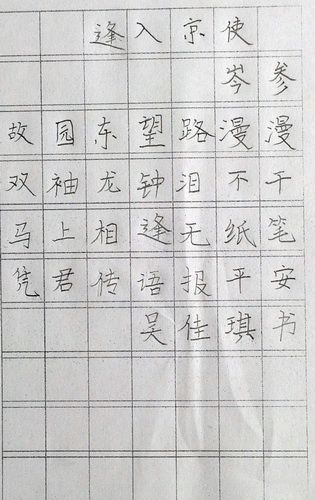 逢入京使
岑参
故园东望路漫漫
双袖龙钟泪不干
马上相逢无纸笔
凭君传语报平安
吴佳琪书